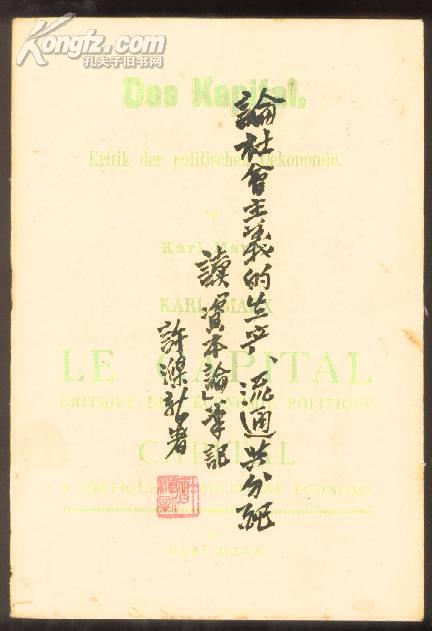 Kongfz.com
孔夫子旧书网
Das Kapital,
Kritik der politischen Oekonomie.
Karl Marx
KARL MARX
LE CAPITAL
CRITIQUE DE L'ÉCONOMIE POLITIQUE
CAPITAL
A CRITIQUE POLITICAL ECONOMY
KARL MARX
論社會主義的生产、流通与分配
讀「資本論」筆記
許滌新著